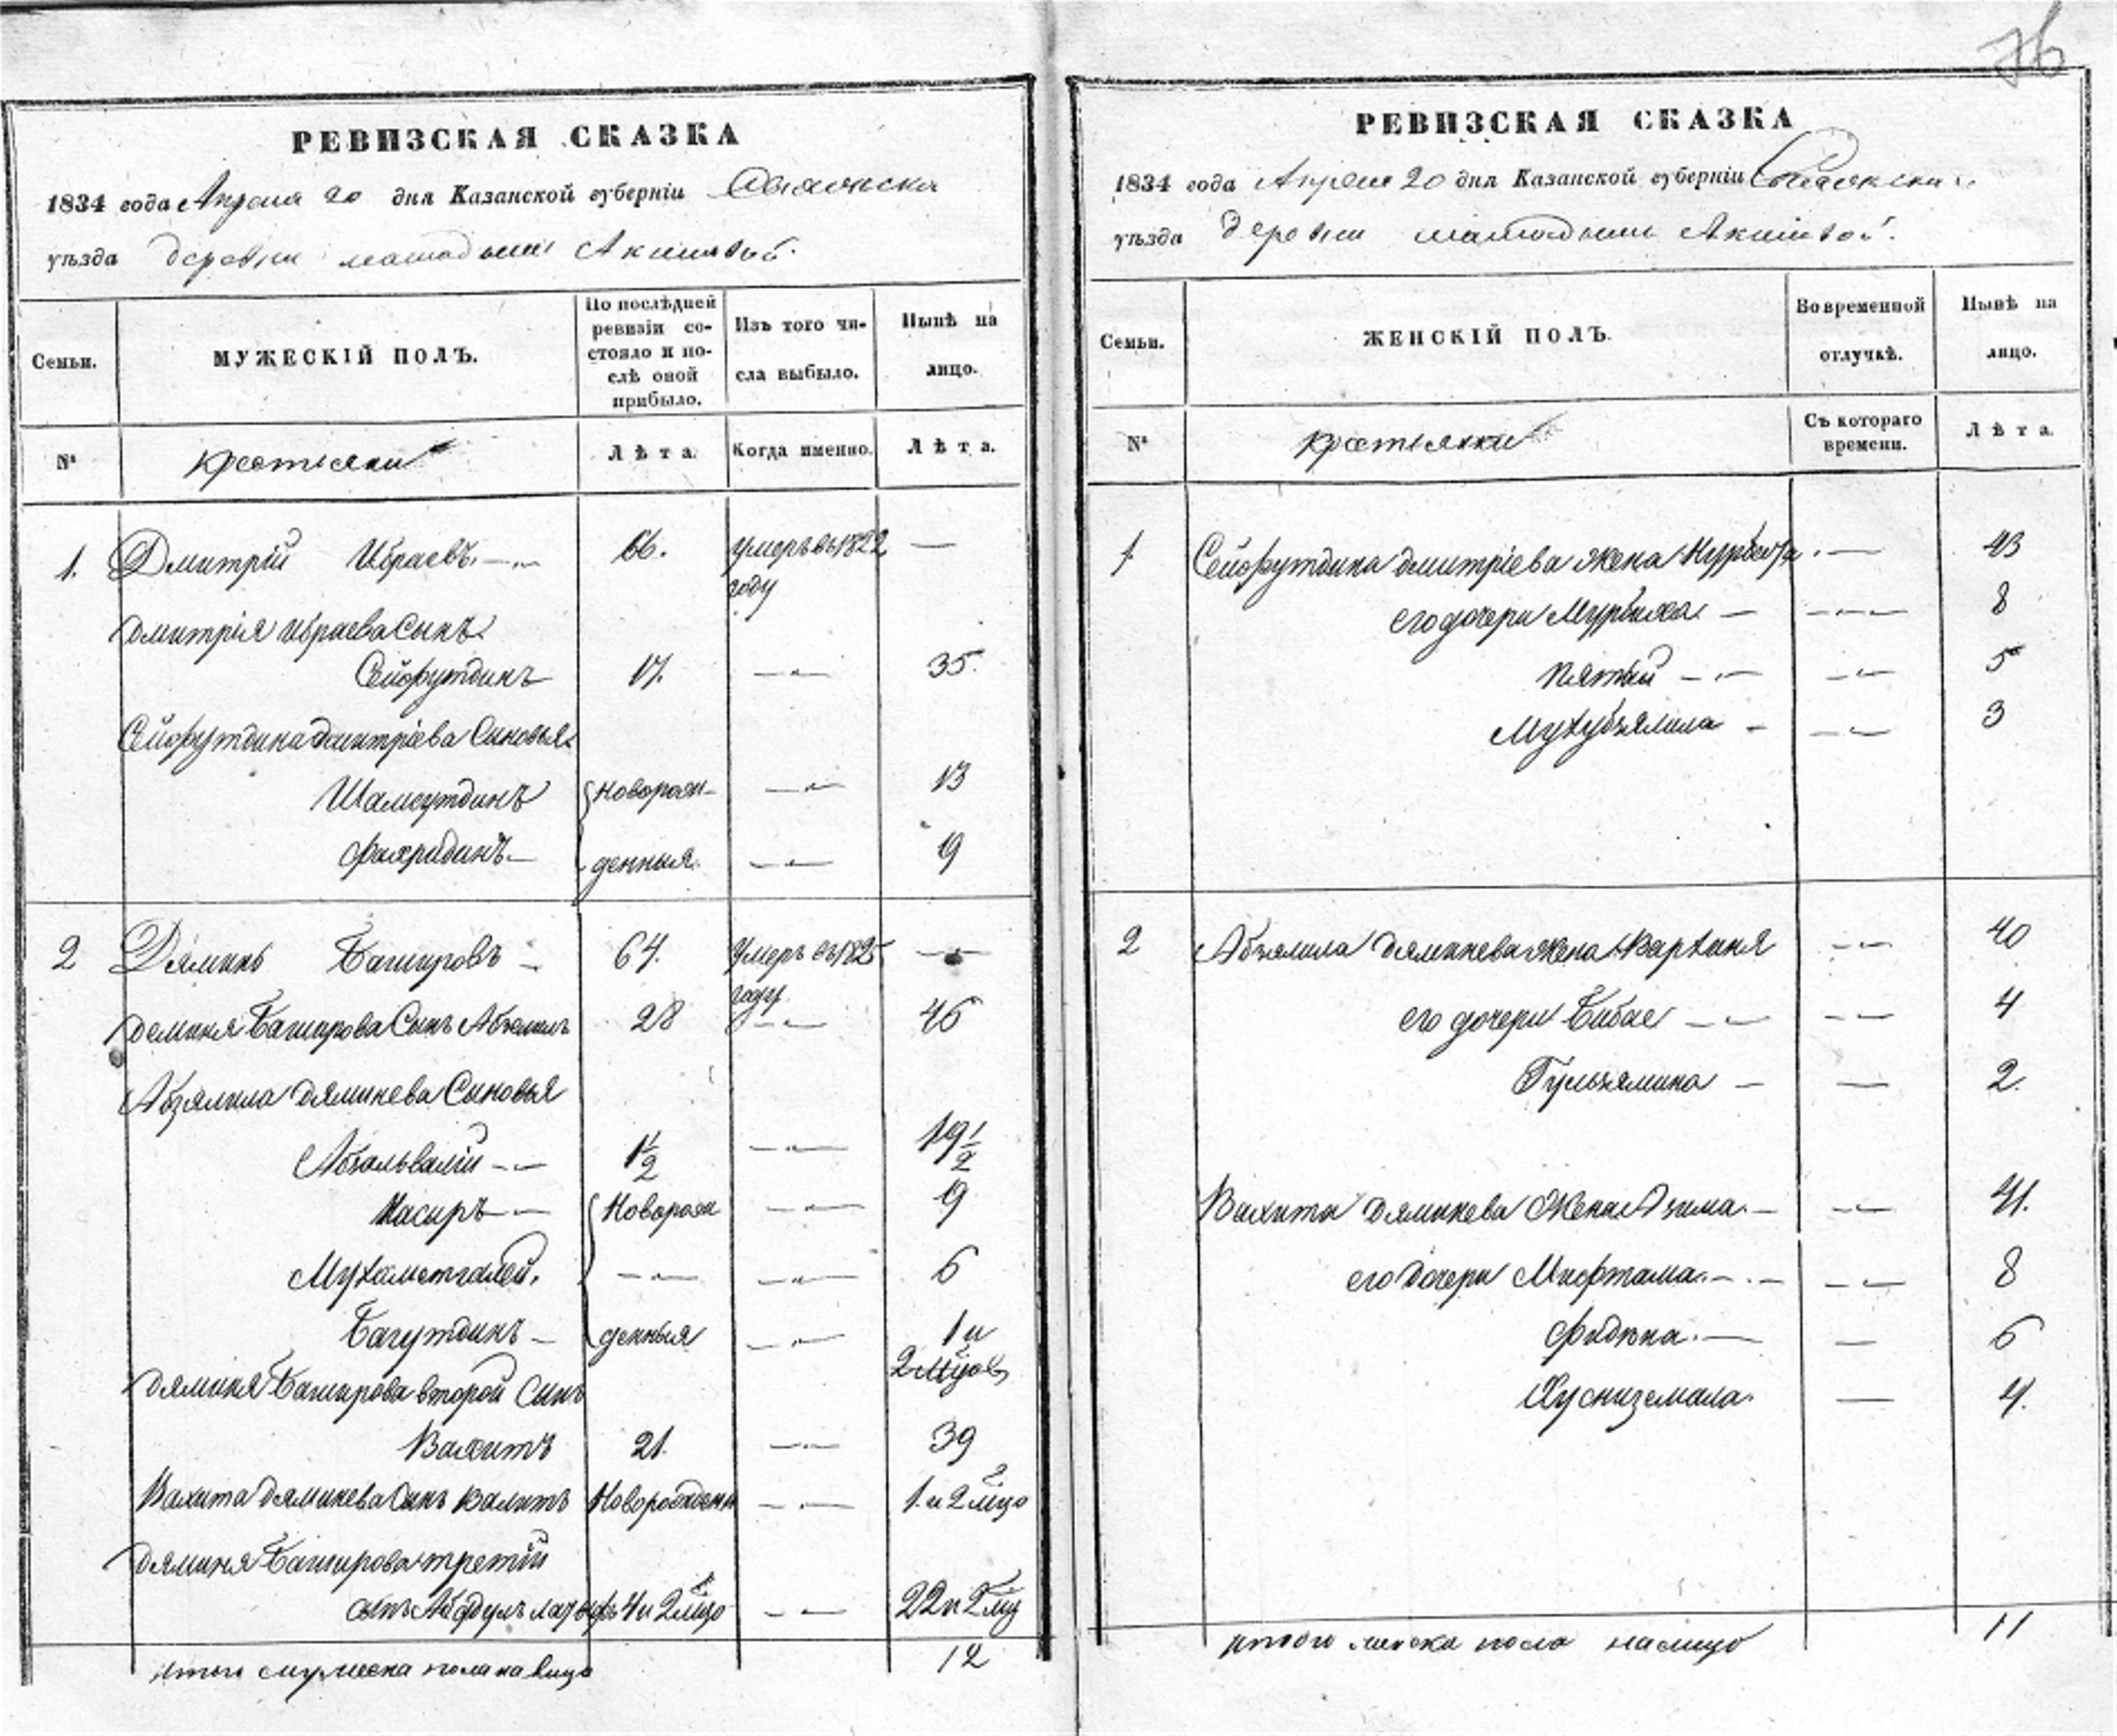 76
РЕВИЗСКАЯ СКАЗКА
1834 года Апреля 20 дня Казанской губерніи
уѣзда деревни Акишвой
Семьи.
МУЖЕСКІЙ ПОЛЪ.
По послѣдней ревизіи состояло и послѣ оной прибыло.
Изъ того числа выбыло.
Нынѣ на лицо.
№
крестьяни
Лѣта.
Когда именно.
Лѣта.
1. Дмитрій Ибраевъ 66. умеръ въ 1822 —
году
Дмитрія Ибраева Сынъ
Сейфутдинъ 17. — 35.
Сейфутдина Дмитріева Сыновья
Шамсутдинъ новорож- — 13
Фахридинъ — денныя. — 9
2 Дяминь Башировъ — 64. Умеръ въ 1825 —
году
Деминя Баширова Сынъ Абзелилъ 28 — 46
Абзялила Дяминева Сыновья
Абзальвалій — 1 1/2 — 19 1/2
Насыръ — Новорож — 9
Мухаметгалей. — — 6
Багутдинъ — денныя — 1 и
2 мцов
Дяминя Баширова второй Сынъ
Вахитъ 21. — 39
Вахита Дяминева Сынъ Валитъ Новорожден — 1 и 2 мцо
Дяминя Баширова третій
сынъ Абдулъ 4 и 2 мцо — 22 и 2 мц
итого мужеска пола на лицо 12
РЕВИЗСКАЯ СКАЗКА
1834 года Апреля 20 дня Казанской губерніи
уѣзда деревни Акишвой.
Семьи.
ЖЕНСКІЙ ПОЛЪ.
Во временной отлучкѣ.
Нынѣ на лицо.
№
крестьянки
Съ котораго времени.
Лѣта.
1 Сейфутдина Дмитріева жена — 43
его дочери Мурбиха — — 8
— — 5
Мухубзямила — — 3
2 Абзялила Дяминева жена — 40
его дочери Бибае — — 4
Гульзямина — — 2.
Вахита Дяминева Жена Азима. — — 41.
его дочери Мифтама. — — 8
Фидина. — — 6
Хуснизямала. — 4.
итого женска пола на лицо 11